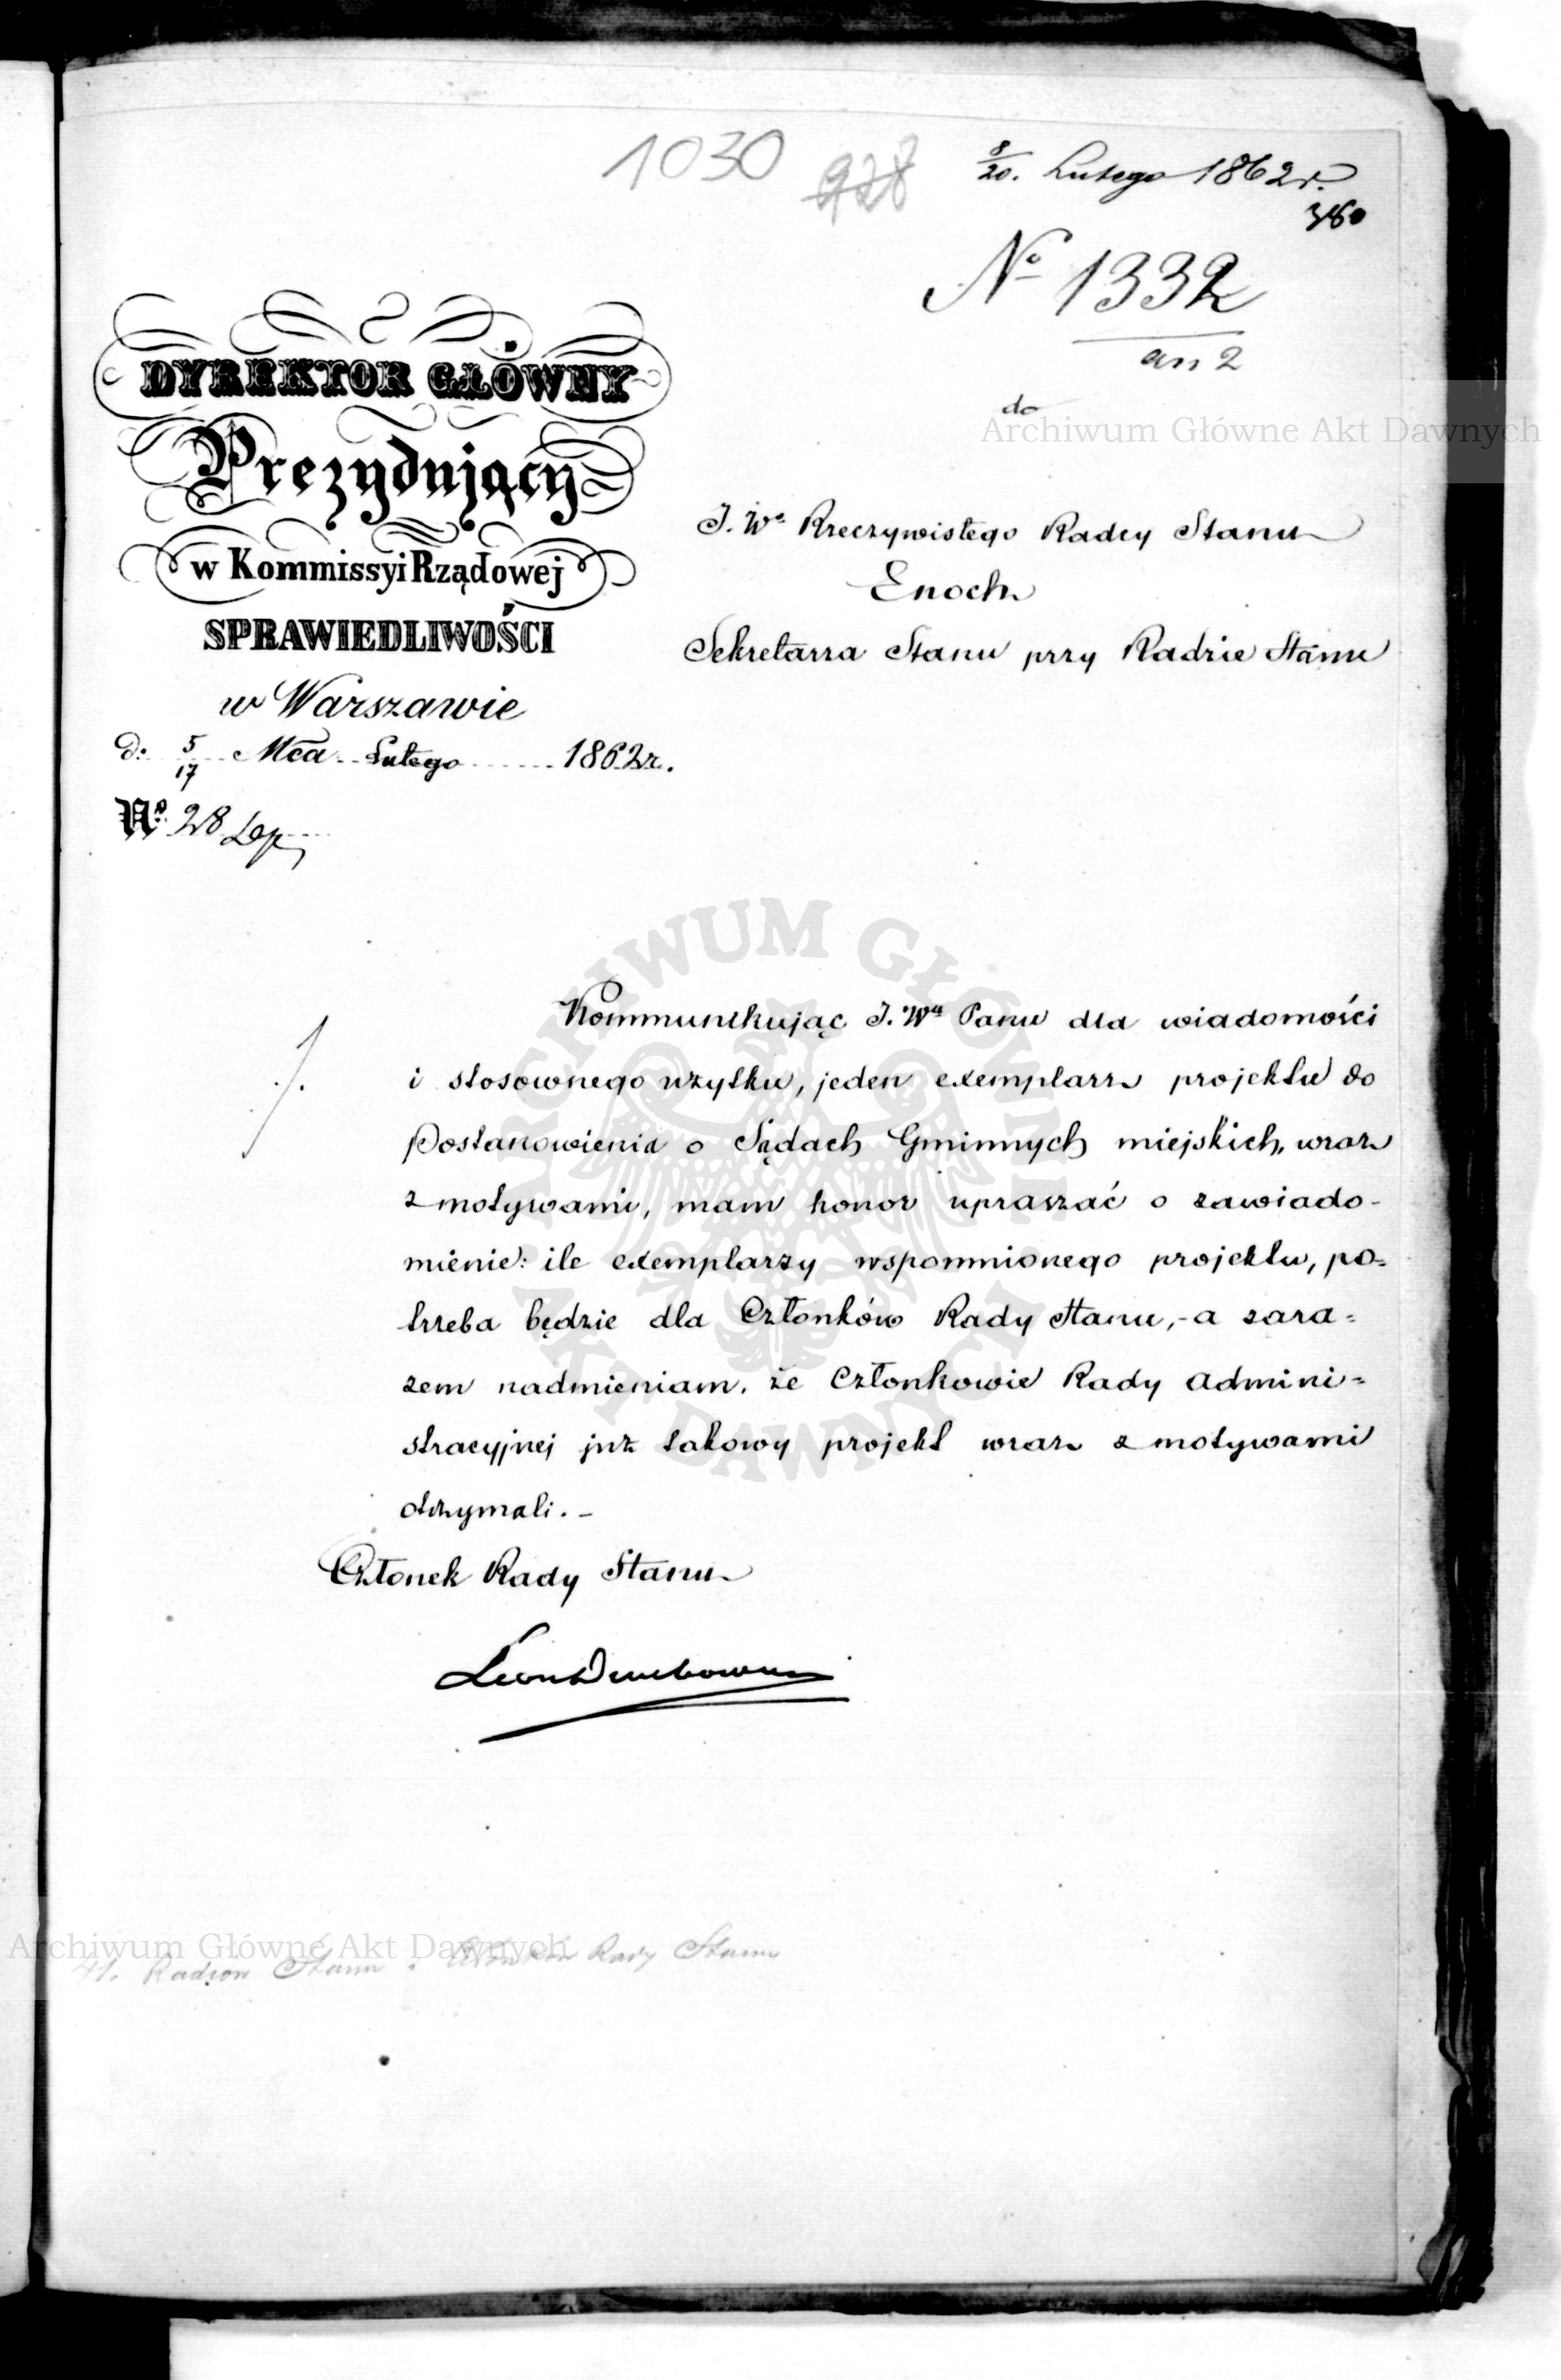 1030 928 8/20. Lutego 1862 r.
380
No 1332
an 2
DYREKTOR GŁÓWNY
Prezydujący
w Kommissyi Rządowej
SPRAWIEDLIWOŚCI
w Warszawie
d: 5/17 Mca Lutego 1862 r.
No. 28 Lep.
do
Archiwum Główne Akt Dawnych
J. Wo Rzeczywistego Radcy Stanu
Enoch
Sekretarza Stanu przy Radzie Stanu
Kommunikując J. Wu Panu dla wiadomości
i stosownego użytku, jeden exemplarz projektu do
Postanowienia o Sądach Gminnych miejskich, wraz
z motywami, mam honor upraszać o zawiado-
mienie: ile exemplarzy wspomnionego projektu, po=
trzeba będzie dla Członków Rady Stanu,- a zara=
zem nadmieniam, że Członkowie Rady Admini=
stracyjnej już takowy projekt wraz z motywami
otrzymali. -
Członek Rady Stanu
Leon Dembowski
ARCHIWUM GŁÓWNE AKT DAWNYCH
Archiwum Główne Akt Dawnych
41. Radców Stanu i Członków Rady Stanu